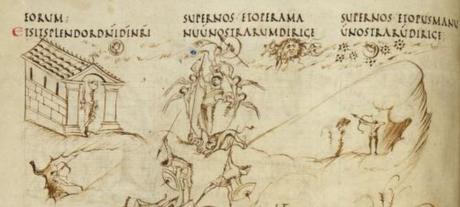 EORUM:
ETSITSPLENDORDN̄ID̄IN̄R̄I
SUPERNOS ETOPERAMA
NUŪNOSTRARUMDIRIGE
SUPERNOS ETOPUSMANU
ŪNOSTRARŪDIRIGE